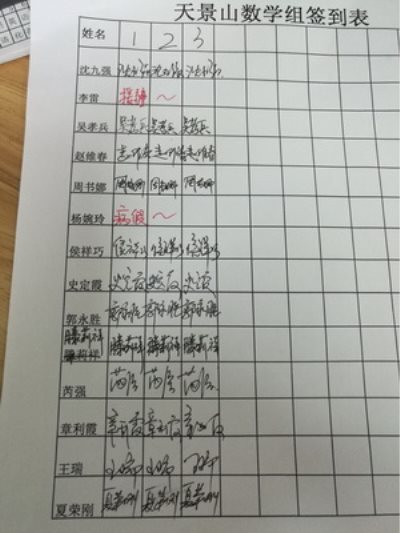 天景山数学组签到表
姓名 1 2 3
沈九强 沈九强 沈九强 沈九强
李雷 援疆 ~
吴孝兵 吴孝兵 吴孝兵 吴孝兵
赵维春 赵维春 赵维春 赵维春
周书娜 周书娜 周书娜 周书娜
杨婉玲 病假 ~
侯祥巧 侯祥巧 侯祥巧 侯祥巧
史定霞 史定霞 史定霞 史定霞
郭永胜 郭永胜 郭永胜 郭永胜
滕莉祥 滕莉祥 滕莉祥 滕莉祥
芮强 芮强 芮强 芮强
章利霞 章利霞 章利霞 章利霞
王瑞 王瑞 王瑞 王瑞
夏荣刚 夏荣刚 夏荣刚 夏荣刚